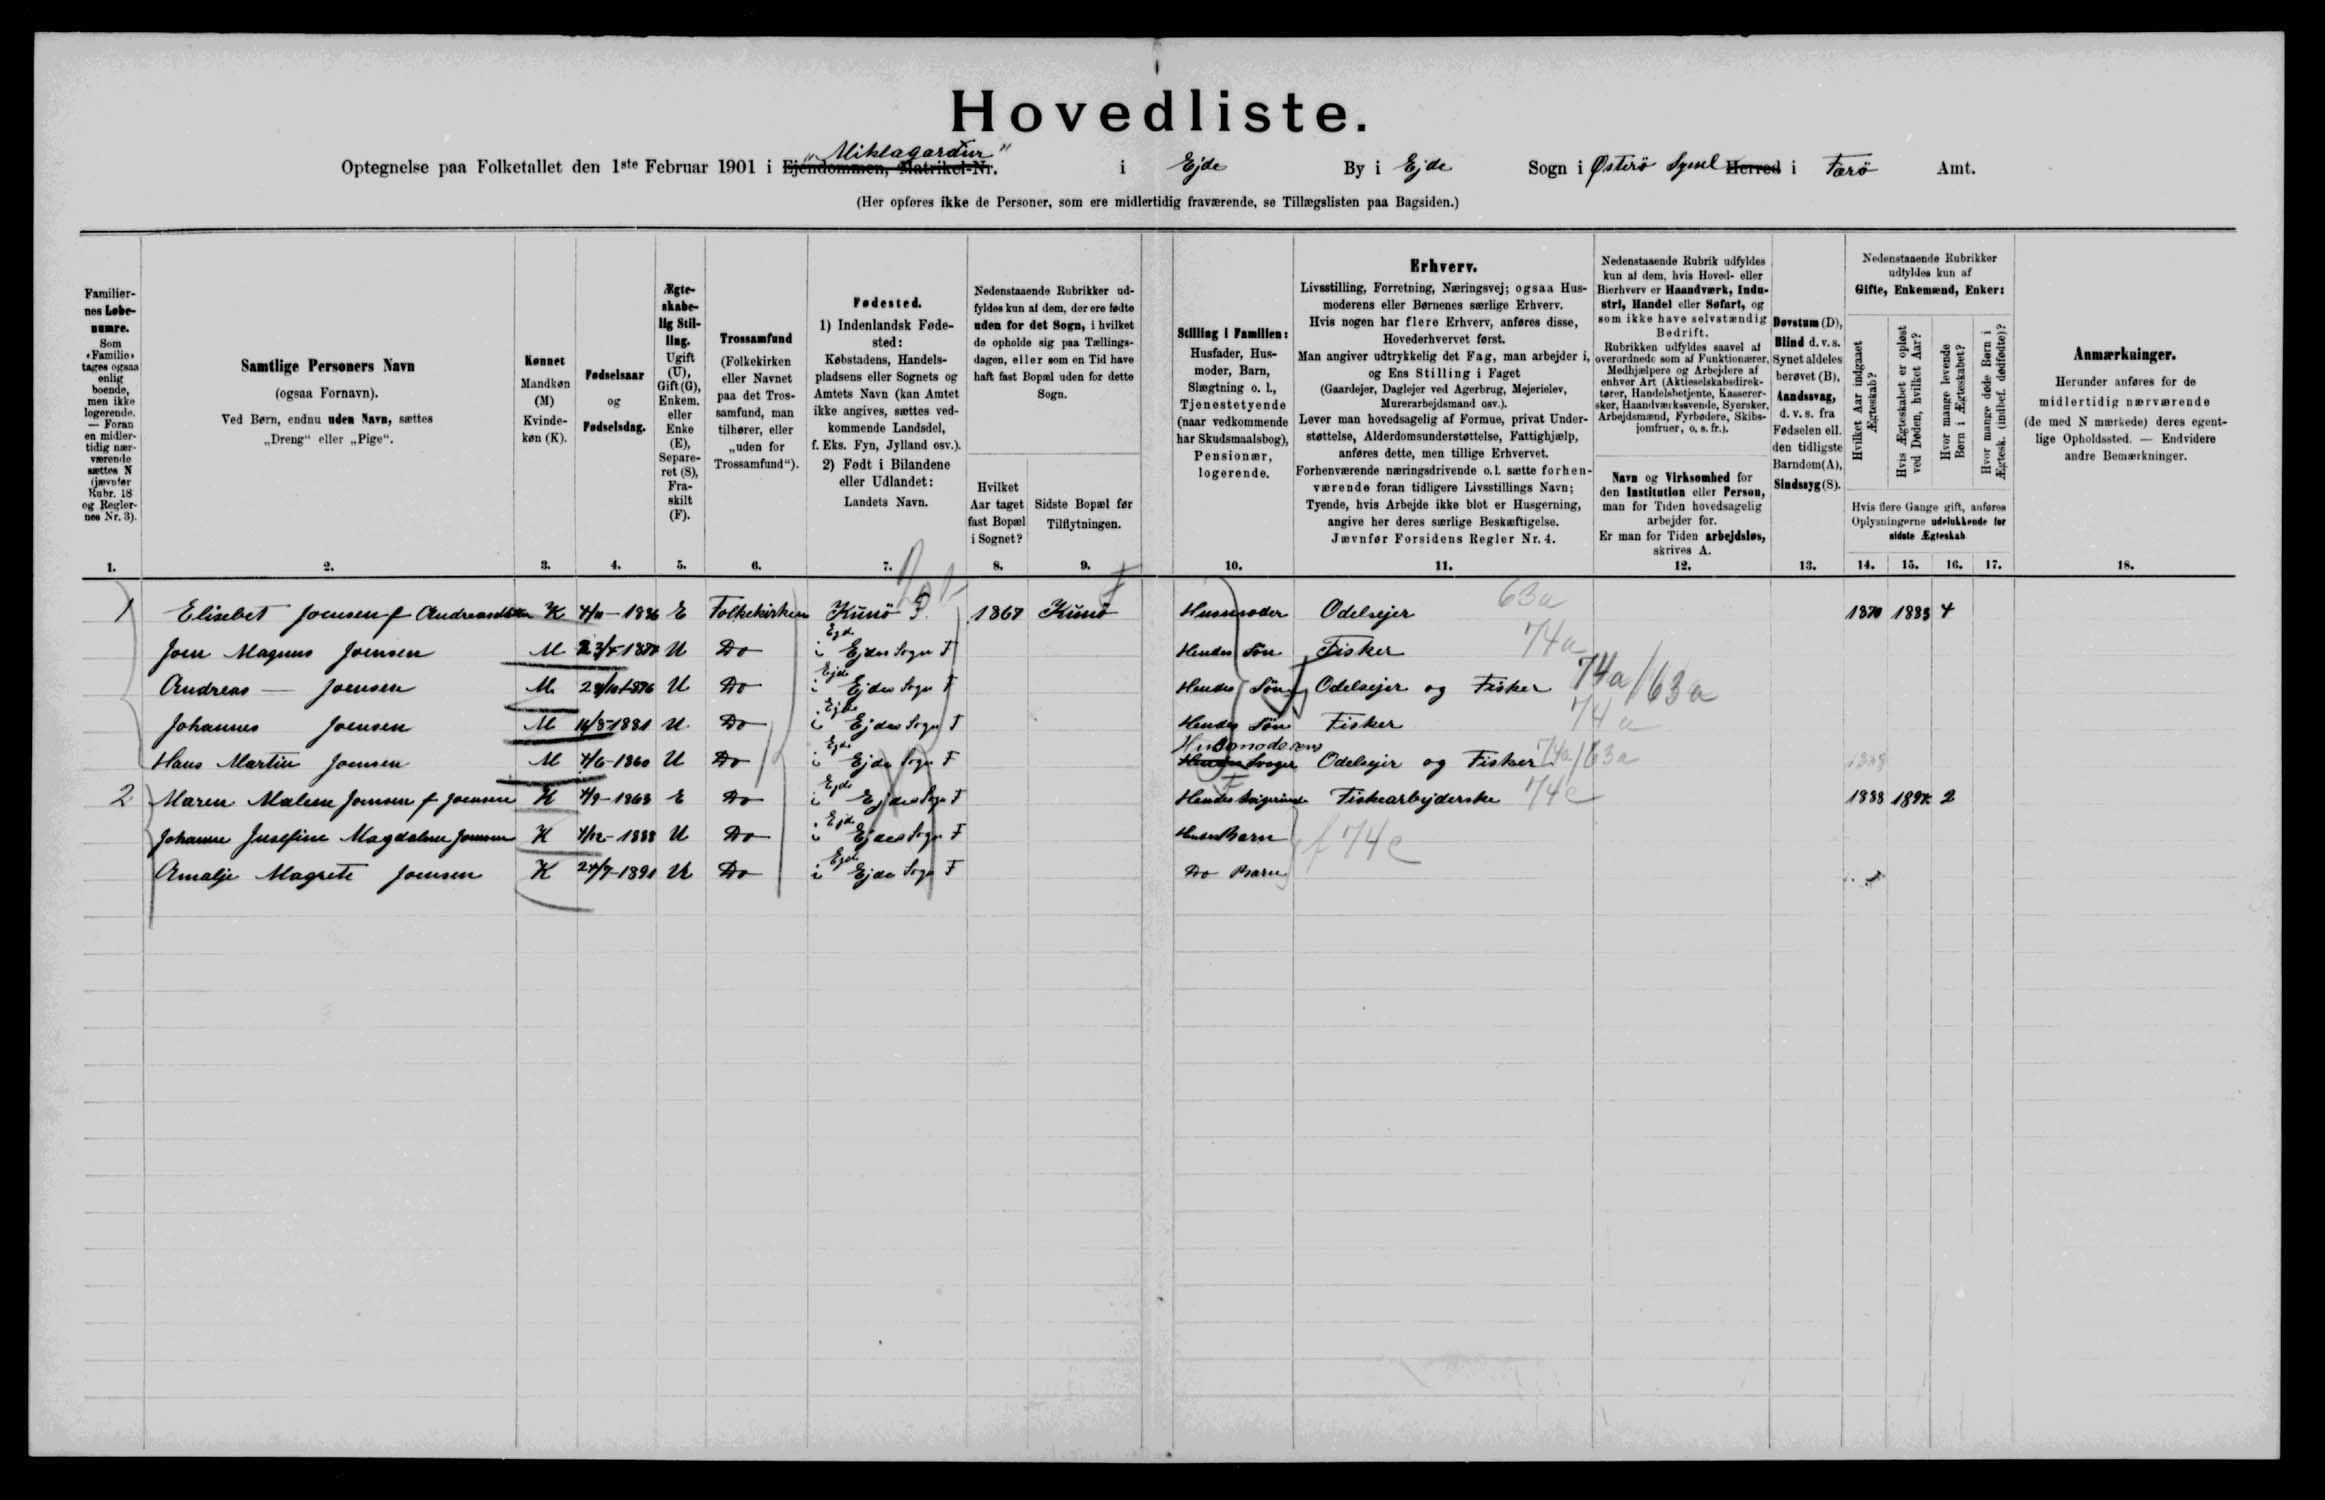 Hovedliste.
Optegnelse paa Folketallet den 1ste Februar 1901 i Ejendommen, Matrikel-Nr. "Miklagardur" i Ejde By i Ejde Sogn i Østerø Syssel Herred i Færø Amt.
(Her opføres ikke de Personer, som ere midlertidig fraværende, se Tillægslisten paa Bagsiden.)
Familiernes Løbenumre.
Som «Familie» tages ogsaa enlig boende, men ikke logerende. — Foran en midlertidig nærværende sættes N (jævnfør Rubr. 18 og Reglernes Nr. 3).
Samtlige Personers Navn
(ogsaa Fornavn).
Ved Børn, endnu uden Navn, sættes
„Dreng“ eller „Pige“.
Kønnet
Mandkøn (M)
Kvindekøn (K).
Fødselsaar
og
Fødselsdag.
Ægteskabelig Stilling.
Ugift (U), Gift (G), Enkem. eller Enke (E), Separeret (S), Fraskilt (F).
Trossamfund
(Folkekirken eller Navnet paa det Trossamfund, man tilhører, eller „uden for Trossamfund“).
Fødested.
1) Indenlandsk Fødested:
Købstadens, Handelspladsens eller Sognets og Amtets Navn (kan Amtet ikke angives, sættes vedkommende Landsdel, f. Eks. Fyn, Jylland osv.).
2) Født i Bilandene eller Udlandet:
Landets Navn.
Nedenstaaende Rubrikker udfyldes kun af dem, der ere fødte uden for det Sogn, i hvilket de opholde sig paa Tællingsdagen, eller som en Tid have haft fast Bopæl uden for dette Sogn.
Hvilket Aar taget fast Bopæl i Sognet?
Sidste Bopæl før Tilflytningen.
Stilling i Familien:
Husfader, Husmoder, Barn, Slægtning o. l., Tjenestetyende (naar vedkommende har Skudsmaalsbog), Pensionær, logerende.
Erhverv.
Livsstilling, Forretning, Næringsvej; ogsaa Husmoderens eller Børnenes særlige Erhverv.
Hvis nogen har flere Erhverv, anføres disse, Hovederhvervet først.
Man angiver udtrykkelig det Fag, man arbejder i, og Ens Stilling i Faget
(Gaardejer, Daglejer ved Agerbrug, Mejerielev, Murerarbejdsmand osv.).
Lever man hovedsagelig af Formue, privat Understøttelse, Alderdomsunderstøttelse, Fattighjælp, anføres dette, men tillige Erhvervet.
Forhenværende næringsdrivende o.l. sætte forhenværende foran tidligere Livsstillings Navn;
Tyende, hvis Arbejde ikke blot er Husgerning, angive her deres særlige Beskæftigelse.
Jævnfør Forsidens Regler Nr. 4.
Nedenstaaende Rubrik udfyldes kun af dem, hvis Hoved- eller Bierhverv er Haandværk, Industri, Handel eller Søfart, og som ikke have selvstændig Bedrift.
Rubrikken udfyldes saavel af overordnede som af Funktionærer, Medhjælpere og Arbejdere af enhver Art (Aktieselskabsdirektører, Handelsbetjente, Kasserersker, Haandværkssvende, Syersker, Arbejdsmænd, Fyrbødere, Skibsjomfruer, o. s. fr.).
Navn og Virksomhed for den Institution eller Person, man for Tiden hovedsagelig arbejder for.
Er man for Tiden arbejdsløs, skrives A.
Døvstum (D), Blind d. v. s. Synet aldeles berøvet (B), Aandssvag, d. v. s. fra Fødselen ell. den tidligste Barndom (A), Sindssyg (S).
Nedenstaaende Rubrikker udfyldes kun af
Gifte, Enkemænd, Enker:
Hvilket Aar indgaaet Ægteskab?
Hvis Ægteskabet er opløst ved Døden, hvilket Aar?
Hvor mange levende Børn i Ægteskabet?
Hvor mange døde Børn i Ægtesk. (indbef. dødfødte)?
Hvis flere Gange gift, anføres Oplysningerne udelukkende for sidste Ægteskab
Anmærkninger.
Herunder anføres for de midlertidig nærværende (de med N mærkede) deres egentlige Opholdssted. — Endvidere andre Bemærkninger.
1. 2. 3. 4. 5. 6. 7. 8. 9. 10. 11. 12. 13. 14. 15. 16. 17. 18.
1 Elisebet Joensen f Andreasdatter K 4/11-1836 E Folkekirken Kunø F. 1867 Kunø Husmoder Odelsejer 63a 1870 1883 4
Joen Magnus Joensen M U Do i Ejdes Sogn F Hendes Søn Fisker 74a
Andreas — Joensen M 28/10-1876 U Do i Ejdes Sogn F Hendes Søn Odelsejer og Fisker 74a/63a
Johannes Joensen M 16/8-1881 U Do i Ejdes Sogn F Hendes Søn Fisker 74a
Hans Martin Joensen M 4/6-1860 U Do i Ejde Sogn F Husmoderens Svoger Odelsejer og Fisker 74a/63a
2 Maren Malene Joensen f Joensen K 4/9-1863 E Do i Ejdes Sogn F Hendes Svigerinde Fiskearbejderske 74c 1888 1894 2
Johanne Jusefine Magdalene Joensen K 4/12-1888 U Do i Ejdes Sogn F Hendes Barn f 74c
Amalje Magrete Joensen K 24/7-1891 U Do i Ejde Sogn F Do Barn